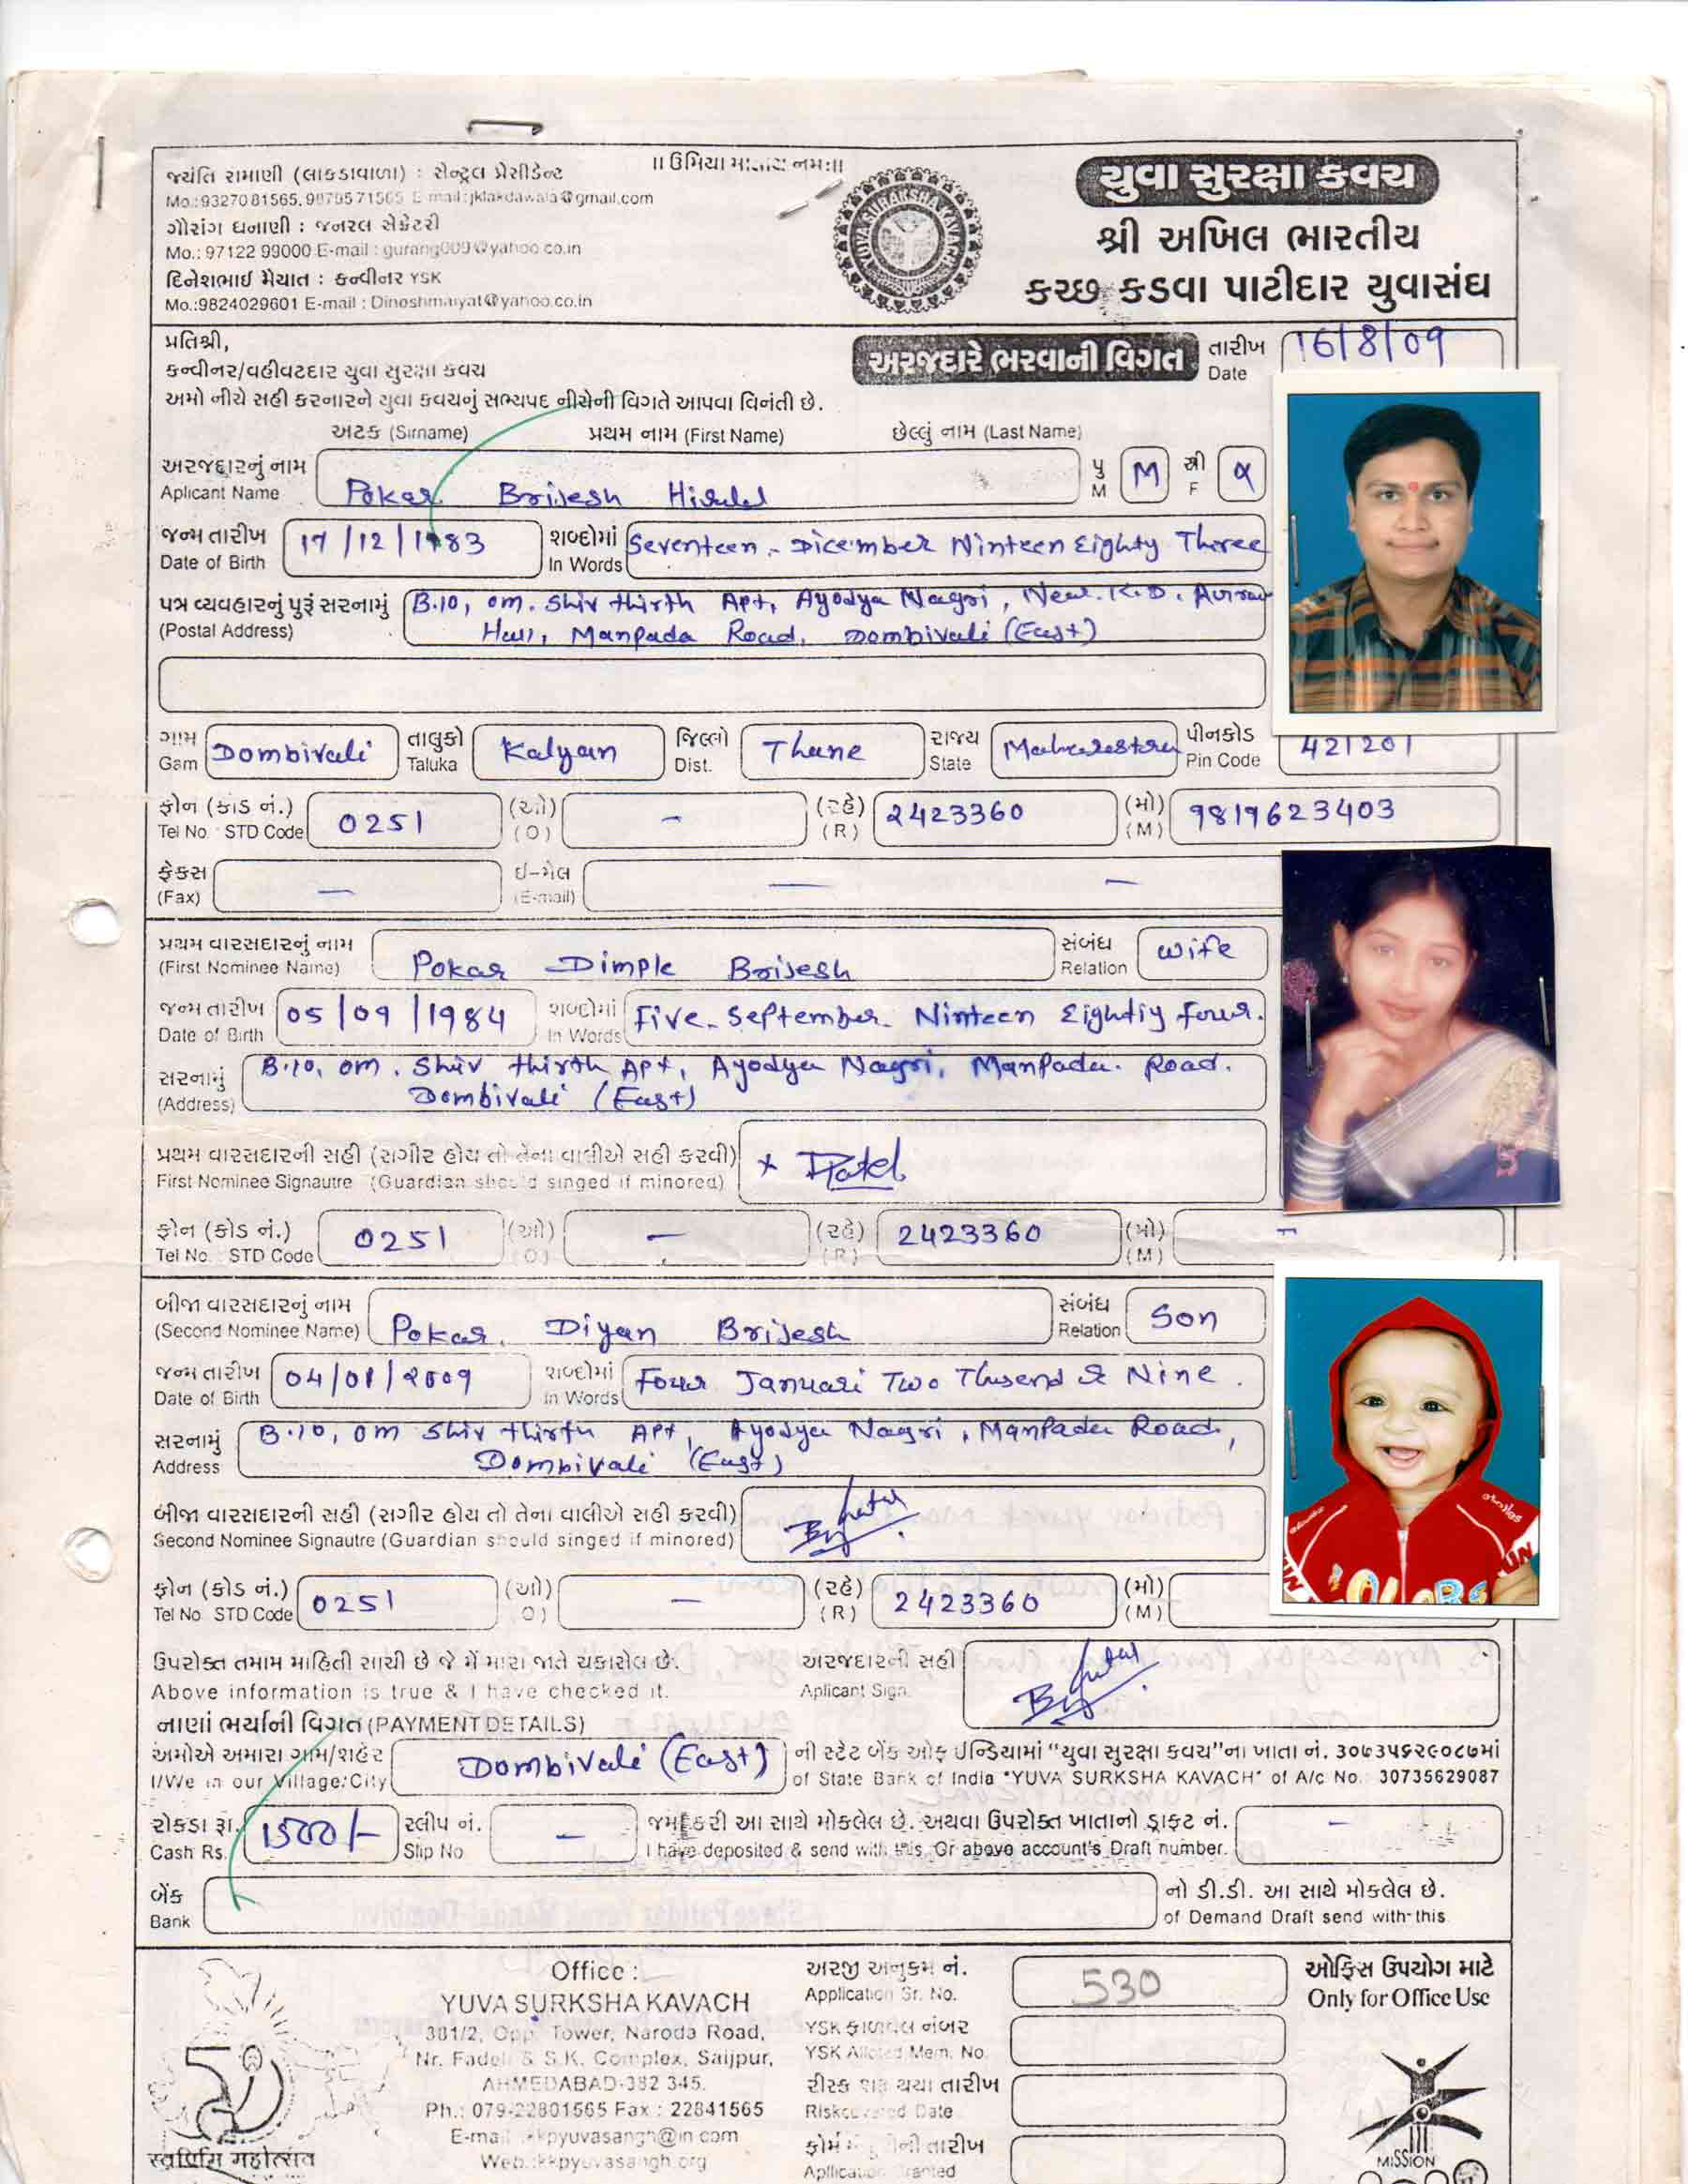 ॥ ઉમિયા માતાય નમઃ॥
જયંતિ રામાણી (લાકડાવાળા) : સેન્ટ્રલ પ્રેસીડેન્ટ
Mo.:9327081565, 9879571565 E-mail:jklakdawala@gmail.com
ગૌરાંગ ધનાણી : જનરલ સેક્રેટરી
Mo.: 97122 99000 E-mail : gurang009@yahoo.co.in
દિનેશભાઈ મૈયાત : કન્વીનર YSK
Mo.:9824029601 E-mail : Dineshmaiyat@yahoo.co.in
YUVA SURAKSHA KAVACH
યુવા સુરક્ષા કવચ
શ્રી અખિલ ભારતીય
કચ્છ કડવા પાટીદાર યુવાસંઘ
પ્રતિશ્રી,
કન્વીનર/વહીવટદાર યુવા સુરક્ષા કવચ
અરજદારે ભરવાની વિગત
તારીખ Date 16/8/09
અમો નીચે સહી કરનારને યુવા કવચનું સભ્યપદ નીચેની વિગતે આપવા વિનંતી છે.
અટક (Sirname) પ્રથમ નામ (First Name) છેલ્લું નામ (Last Name)
અરજદારનું નામ Aplicant Name Pokar Brijesh પુ M M સ્ત્રી F
જન્મ તારીખ Date of Birth 17/12/1983 શબ્દોમાં In Words Seventeen - Dicember Ninteen Eighty Three
પત્ર વ્યવહારનું પુરૂં સરનામું (Postal Address) B.10, om. Shiv thirth Apt, Ayodya Nagri, Near. K.D.
Hall, Manpada Road, Dombivali (East)
ગામ Gam Dombivali તાલુકો Taluka Kalyan જિલ્લો Dist. Thane રાજ્ય State Maharashtra પીનકોડ Pin Code 421201
ફોન (કોડ નં.) Tel No. STD Code 0251 (ઓ) (O) – (રહે) (R) 2423360 (મો) (M) 9819623403
ફેકસ (Fax) – ઈ-મેલ (E-mail) – –
પ્રથમ વારસદારનું નામ (First Nominee Name) Pokar Dimple Brijesh સંબંધ Relation wife
જન્મ તારીખ Date of Birth 05/09/1984 શબ્દોમાં In Words Five. September. Ninteen Eightiy four.
સરનામું (Address) B.10, om. Shiv thirth Apt, Ayodya Nagri, Manpada. Road.
Dombivali (East)
પ્રથમ વારસદારની સહી (સગીર હોય તો તેના વાલીએ સહી કરવી)
First Nominee Signautre (Guardian should singed if minored) x Patel
ફોન (કોડ નં.) Tel No. STD Code 0251 (ઓ) (O) – (રહે) (R) 2423360 (મો) (M) –
બીજા વારસદારનું નામ (Second Nominee Name) Pokar. Diyan Brijesh સંબંધ Relation Son
જન્મ તારીખ Date of Birth 04/01/2009 શબ્દોમાં In Words Four Januari Two Thusend & Nine.
સરનામું Address B.10, om Shiv thirth Apt, Ayodya Nagri, Manpada Road,
Dombivali (East)
બીજા વારસદારની સહી (સગીર હોય તો તેના વાલીએ સહી કરવી)
Second Nominee Signautre (Guardian should singed if minored)
ફોન (કોડ નં.) Tel No STD Code 0251 (ઓ) (O) – (રહે) (R) 2423360 (મો) (M)
ઉપરોક્ત તમામ માહિતી સાચી છે જે મેં મારા જાતે ચકાસેલ છે.
Above information is true & I have checked it.
અરજદારની સહી Aplicant Sign.
નાણાં ભર્યાની વિગત (PAYMENT DETAILS)
અમોએ અમારા ગામ/શહેર Dombivali (East) ની સ્ટેટ બેંક ઓફ ઈન્ડિયામાં "યુવા સુરક્ષા કવચ"ના ખાતા નં. ૩૦૭૩૫૬૨૯૦૮૭માં
I/We in our Village/City of State Bank of India "YUVA SURKSHA KAVACH" of A/c No. 30735629087
રોકડા રૂા. Cash Rs. 1500/- સ્લીપ નં. Slip No – જમા કરી આ સાથે મોકલેલ છે. અથવા ઉપરોક્ત ખાતાનો ડ્રાફ્ટ નં. –
I have deposited & send with this Or above account's Draft number.
બેંક Bank નો ડી.ડી. આ સાથે મોકલેલ છે.
of Demand Draft send with this
Office :
YUVA SURKSHA KAVACH
381/2, Opp. Tower, Naroda Road,
S.K. Complex, Saijpur,
AHMEDABAD-382 345.
Ph.: 079-22801565 Fax : 22841565
kkpyuvasangh@in.com
Web.:kkpyuvasangh.org
અરજી અનુક્રમ નં. Application Sr. No. 530
YSK ફાળવેલ નંબર
YSK Alloted Mem. No.
રીસ્ક શરૂ થયા તારીખ
Date
તારીખ
ઓફિસ ઉપયોગ માટે
Only for Office Use
MISSION
સ્વર્ણિમ મહોત્સવ